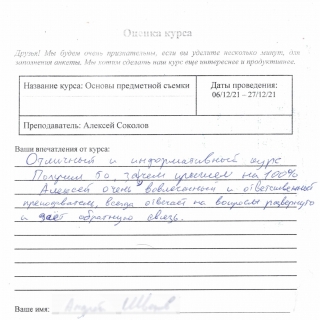 Оценка курса
Друзья! Мы будем очень признательны, если вы уделите несколько минут, для
заполнения анкеты. Мы хотим сделать наш курс еще интереснее и продуктивнее.
Название курса: Основы предметной съемки
Даты проведения:
06/12/21 – 27/12/21
Преподаватель: Алексей Соколов
Ваши впечатления от курса:
Отличный и информативный курс
Получил то, зачем пришел на 100%
Алексей очень вовлеченный и ответственный
преподаватель, всегда отвечает на вопросы развернуто
и дает обратную связь.
Ваше имя: Андрей